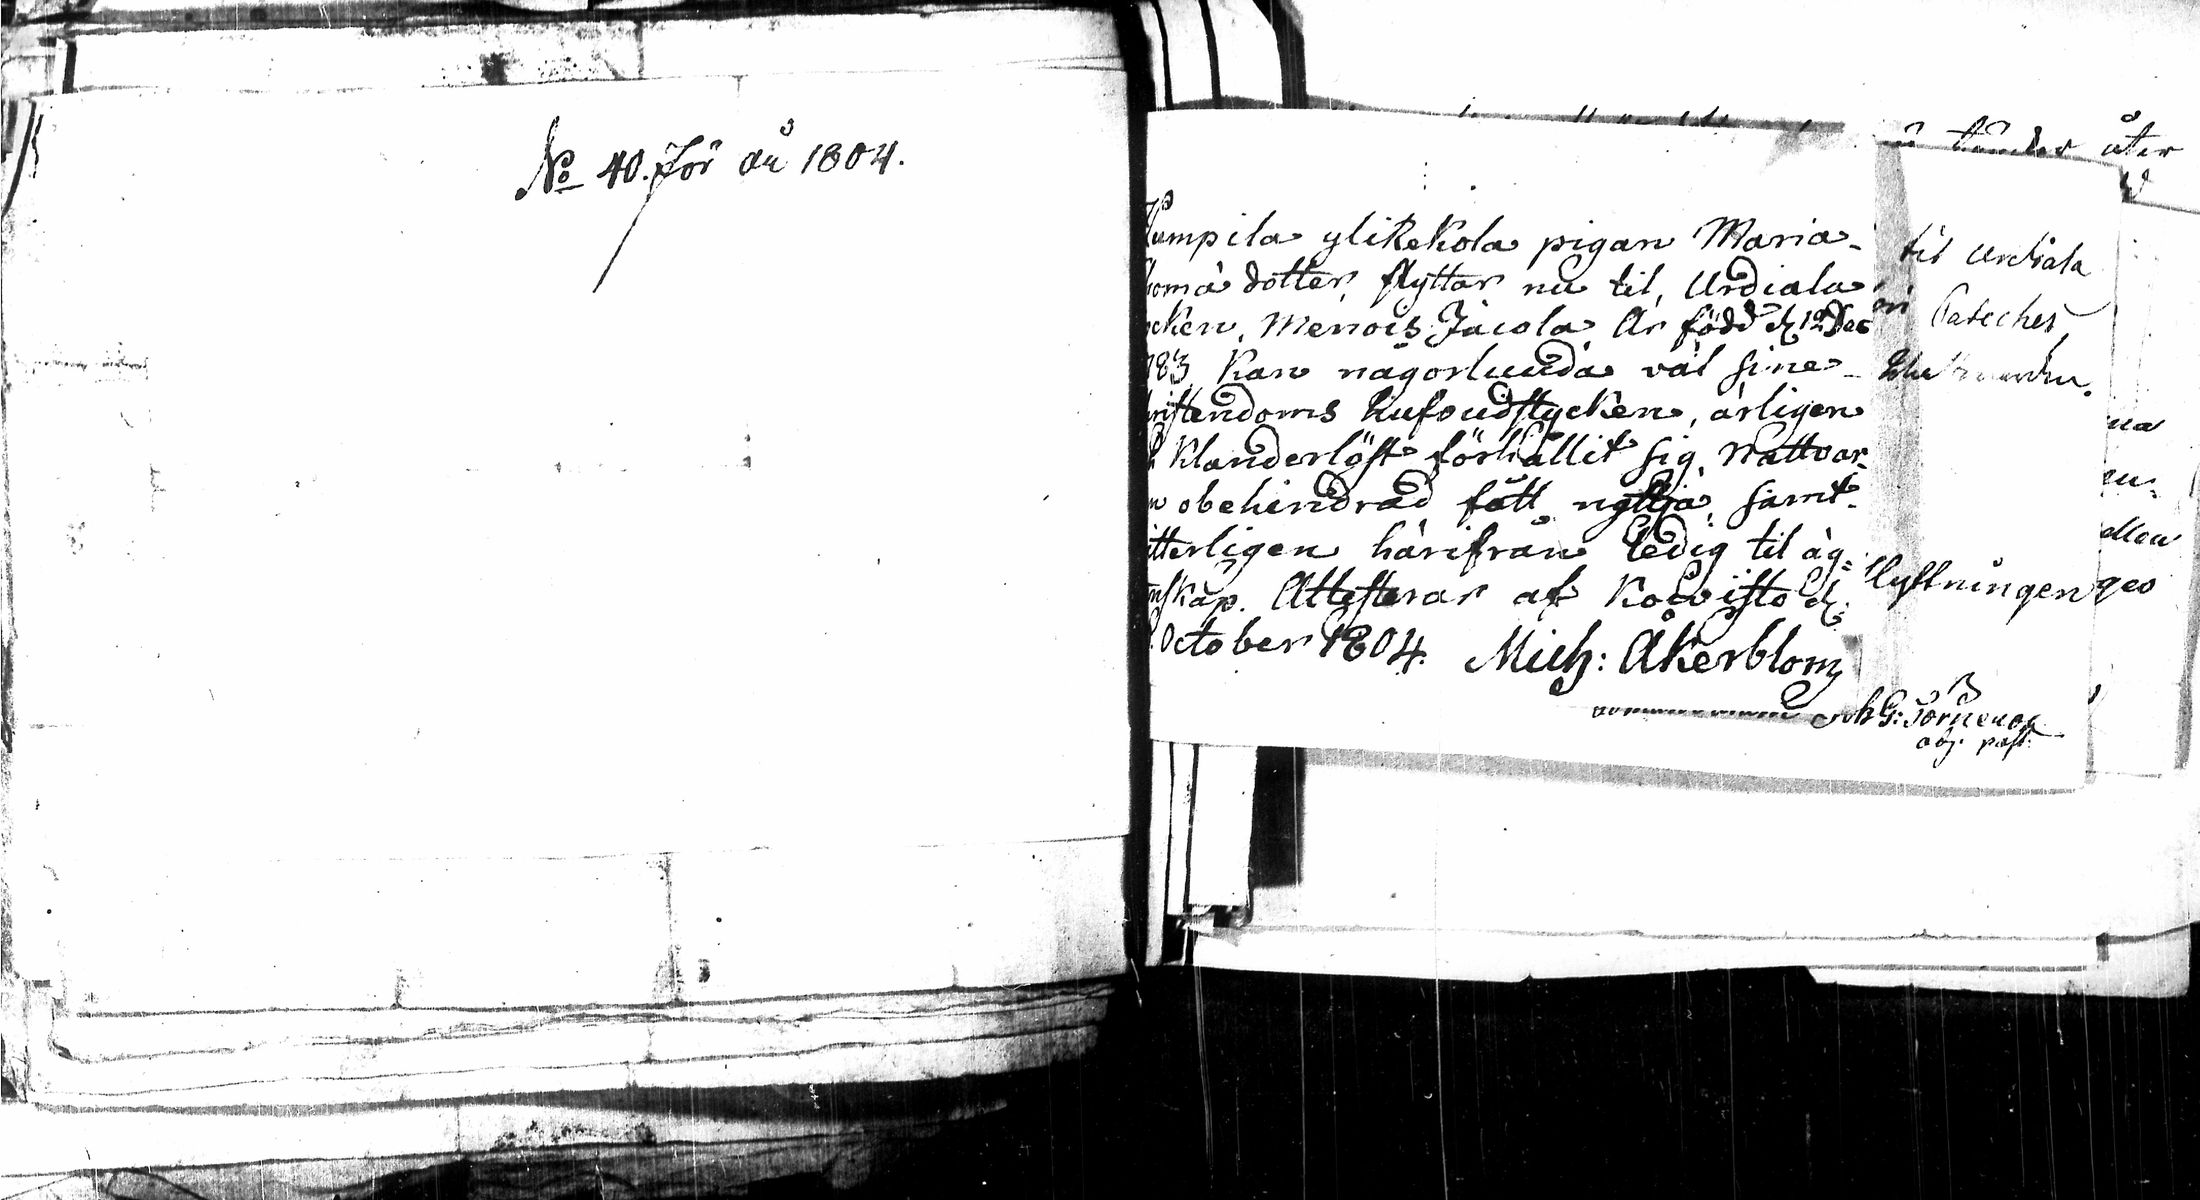 No 40. För åu 1804.
umpila ylikekola pigan Maria
homä dotter, flyttar nu til, Urdiala
cken, Menois Jäcola Är född d 12 Dec
783 Kan någorlunda väl sine
ristendoms hufvudstycken, ärligen
Klanderlöst förhållit sig, Nattvar
obehindrad fått nyttja, samt
itterligen härifrån ledig til äg
nskap. Attesterar af Koivisto d
October 1804. Mich: Åkerblom
til Urdiala
Cateches
flyttningen
G: Törneroos
adj. past:
åter
ua
en
ellan
geo